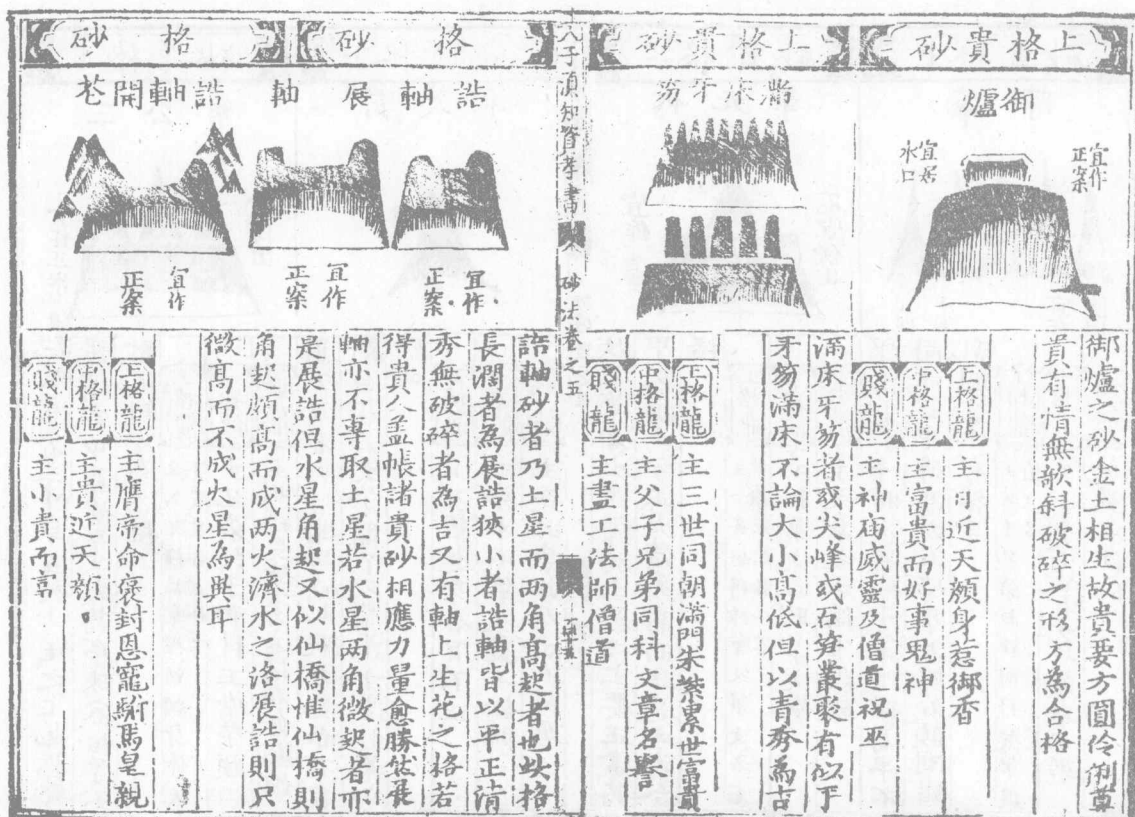 上格貴砂
御爐
宜作
正案
宜居
水口
御爐之砂金土相生故貴要方圓伶俐尊
貴有情無欹斜破碎之形方為合格
上格龍 主日近天顏身惹御香
中格龍 主富貴而好事鬼神
賤龍 主神廟威靈及僧道祝巫
上格貴砂
滿床牙笏
滿床牙笏者或尖峰或石笋叢聚有似乎
牙笏滿床不論大小高低但以青秀為吉
上格龍 主三世同朝滿門朱紫累世富貴
中格龍 主父子兄弟同科文章名譽
賤龍 主畫工法師僧道
人子須知資孝書 砂法卷之五
格砂
誥軸 展軸
宜作
正案
宜作
正案
誥軸砂者乃土星而兩角高起者也此格
長濶者為展誥狹小者誥軸皆以平正清
秀無破碎者為吉又有軸上生花之格若
得貴人盖帳諸貴砂相應力量愈勝然展
軸亦不專取土星若水星兩角微起者亦
是展誥但水星角起又似仙橋惟仙橋則
角起頗高而成兩火濟水之洛展誥則只
微高而不成火星為異耳
格砂
誥軸開花
宜作
正案
上格龍 主膺帝命褒封恩寵駙馬皇親
中格龍 主貴近天顏
賤龍 主小貴而富